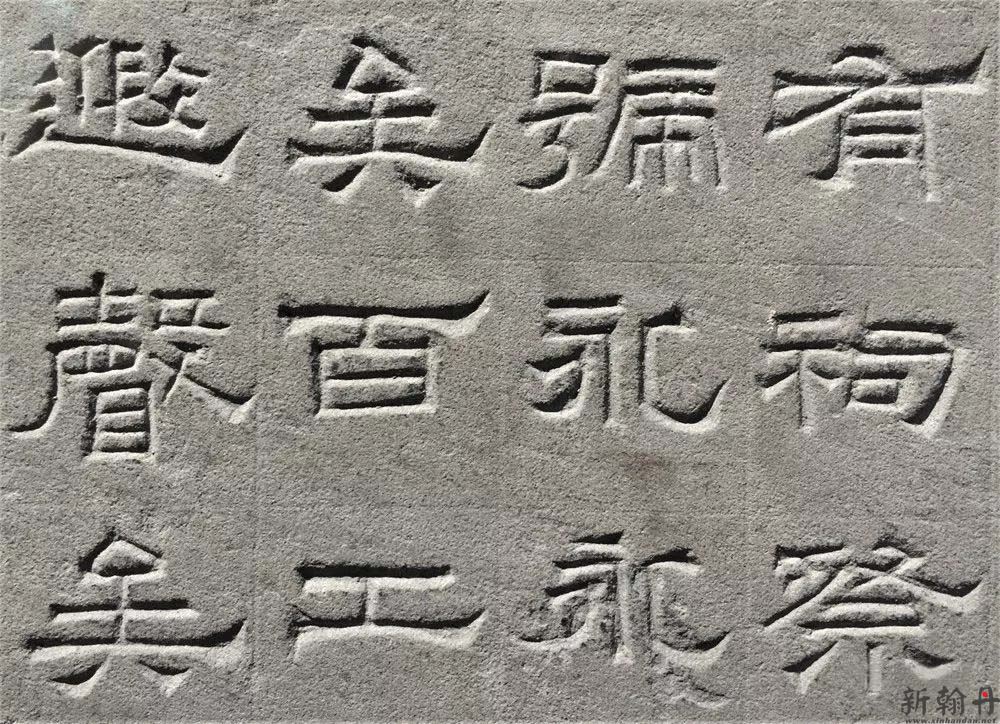 有祠祭
號永永
矣百工
遐聲矣
新翰丹
www.xinhandan.net